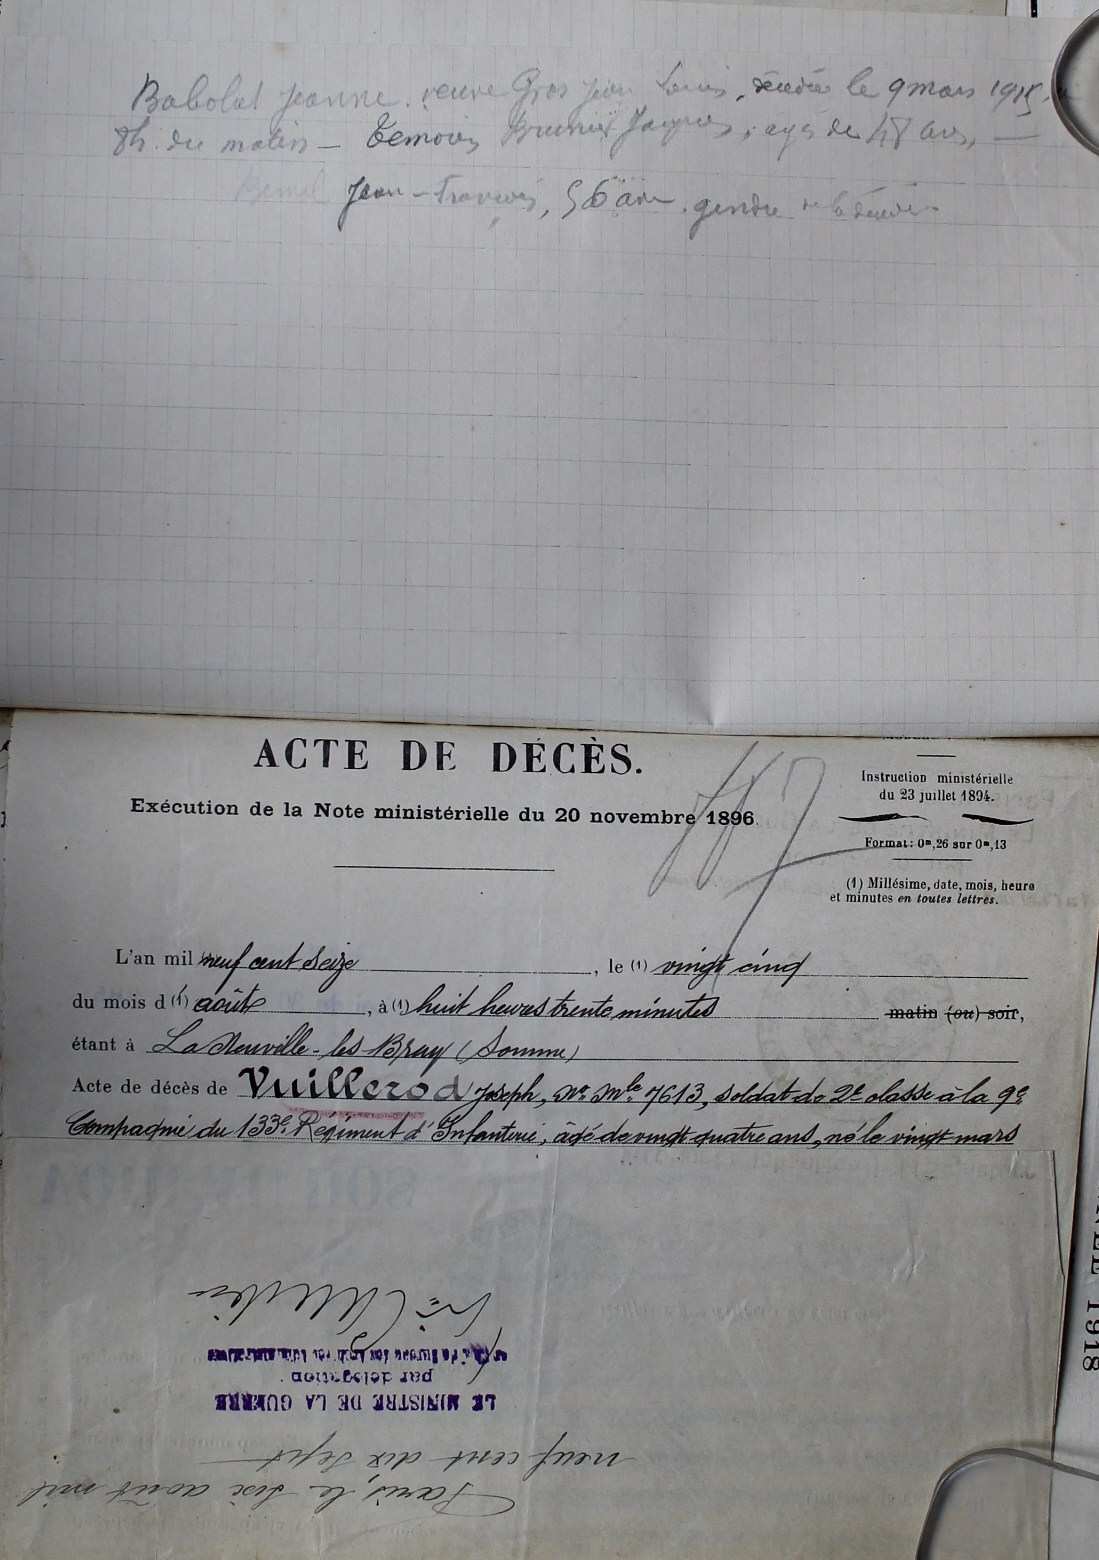 Babolat Jeanne, veuve Gros Jean Louis, décédée le 9 mars 1915,
8h. du matin – Témoins Brunier Jacques, âgé de 48 ans, —
Jean-François, 56 ans, gendre de la décédée
ACTE DE DÉCÈS.
Exécution de la Note ministérielle du 20 novembre 1896.
Instruction ministérielle
du 23 juillet 1894.
Format: 0m,26 sur 0m,13
(1) Millésime, date, mois, heure
et minutes en toutes lettres.
L'an mil neuf cent seize, le (1) vingt cinq
du mois d(1) août, à (1) huit heures trente minutes matin (ou) soir,
étant à La Neuville-les Bray (Somme)
Acte de décès de Vuillerod Joseph, No Mle 7613, soldat de 2e classe à la 9e
Compagnie du 133e Régiment d'Infanterie, âgé de vingt quatre ans, né le vingt mars
Paris, le six août mil
neuf cent dix sept
LE MINISTRE DE LA GUERRE
par délégation
1918